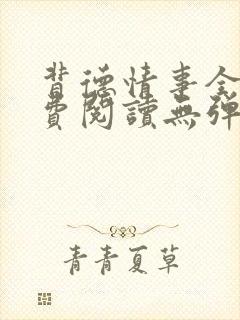 背德情事全
費閱讀無彈
青青夏草